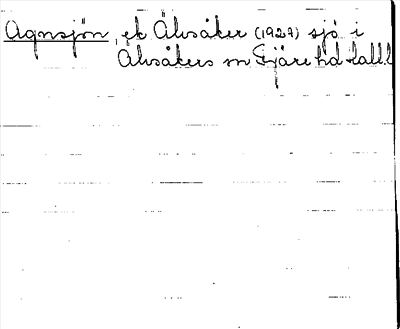 Agnsjön, ek Älvsåker (1927) sjö i
Älvsåkers sn Fjäre hd Hall.l